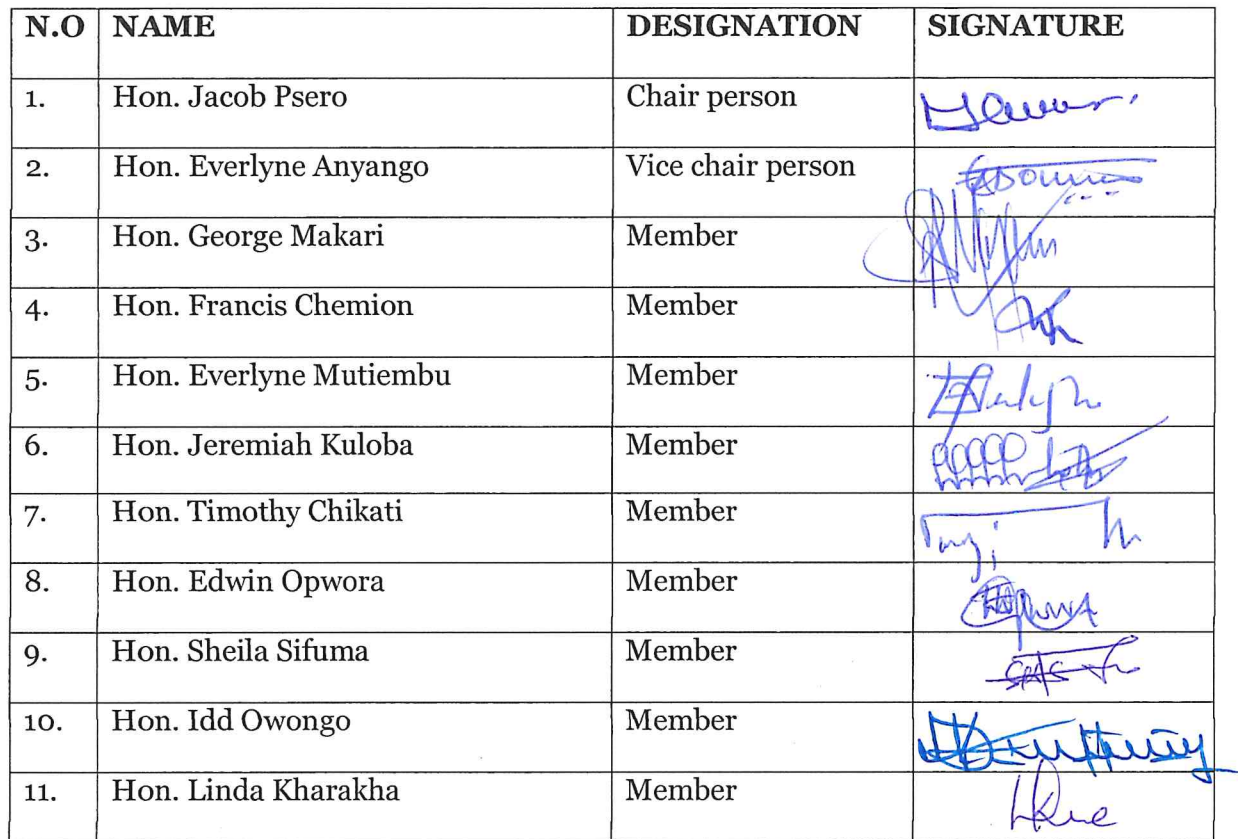 N.O NAME DESIGNATION SIGNATURE
1. Hon. Jacob Psero Chair person
2. Hon. Everlyne Anyango Vice chair person
3. Hon. George Makari Member
4. Hon. Francis Chemion Member
5. Hon. Everlyne Mutiembu Member
6. Hon. Jeremiah Kuloba Member
7. Hon. Timothy Chikati Member
8. Hon. Edwin Opwora Member
9. Hon. Sheila Sifuma Member
10. Hon. Idd Owongo Member
11. Hon. Linda Kharakha Member